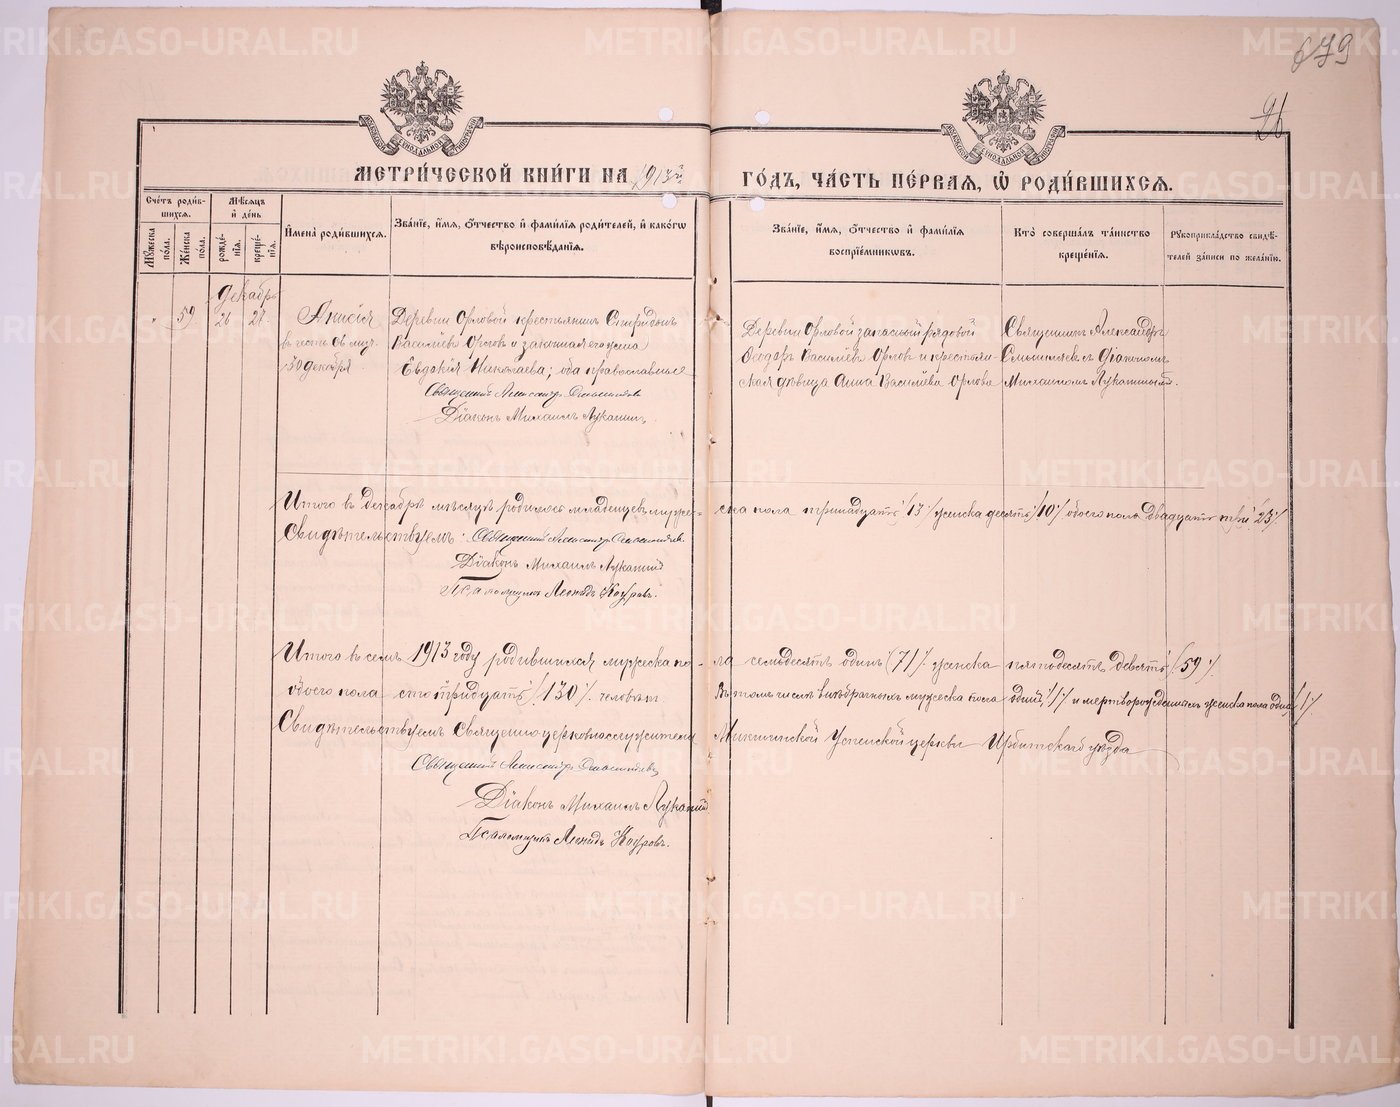 679
26
МЕТРИ́ЧЕСКОЙ КНИ́ГИ НА 1913й
ГО́ДЪ, ЧА́СТЬ ПЕ́РВАЯ, Ѡ РОДИ́ВШИХСЯ.
Сче́тъ роди́в-
шихся.
Мѣ́сяцъ
и҆ де́нь
Му́жеска
по́ла.
Же́нска
по́ла.
рожде́-
нїя.
креще́-
нїя.
И҆мена̀ роди́вшихся.
Зва́нїе, и҆́мя, ѻ҆́тчество и҆ фами́лїя роди́телей, и҆ како́гѡ
вѣроисповѣ́данїя.
Зва́нїе, и҆́мя, ѻ҆́тчество и҆ фами́лїя
воспрїе́мникѡвъ.
Кто̀ соверша́лъ та́инство
креще́нїя.
Рꙋкоприкла́дство свидѣ́-
телей за́писи по жела́нїю.
Декабрь
59. 26 27.
Анисія
30 декабря
Деревни Орловой крестьянинъ Спиридонъ
Васильевъ Орловъ и законная его жена
Евдокія Николаева; оба православные
Священникъ Александръ
Діаконъ Михаилъ Лукинъ
Деревни Орловой запасный рядовой
Ѳеодоръ Васильевъ Орловъ и крестьян-
ская дѣвица Анна Васильева Орлова
Священникъ Александръ
съ Діакономъ
Михаиломъ
Итого въ декабрѣ мѣсяцѣ родилось младенцевъ мужес-
ска пола тринадцать /13/ женска десять /10/ обоего пола двадцать три /23/.
Свидѣтельствуемъ: Священникъ Александръ
Діаконъ Михаилъ
Псаломщикъ Леонидъ
Итого въ семъ 1913 году родившихся мужеска по-
ла семьдесятъ одинъ (71) женска пятьдесятъ девять (59).
обоего пола сто тридцать /130/ человѣкъ.
Въ томъ числѣ внѣбрачныхъ мужеска пола одинъ /1/ и мертворожденныхъ женска пола одна /1/
Свидѣтельствуемъ Священно церковнослужители
Успенской церкви Ирбитскаго уѣзда
Священникъ Александръ
Діаконъ Михаилъ
Псаломщикъ Леонидъ
METRIKI.GASO-URAL.RU